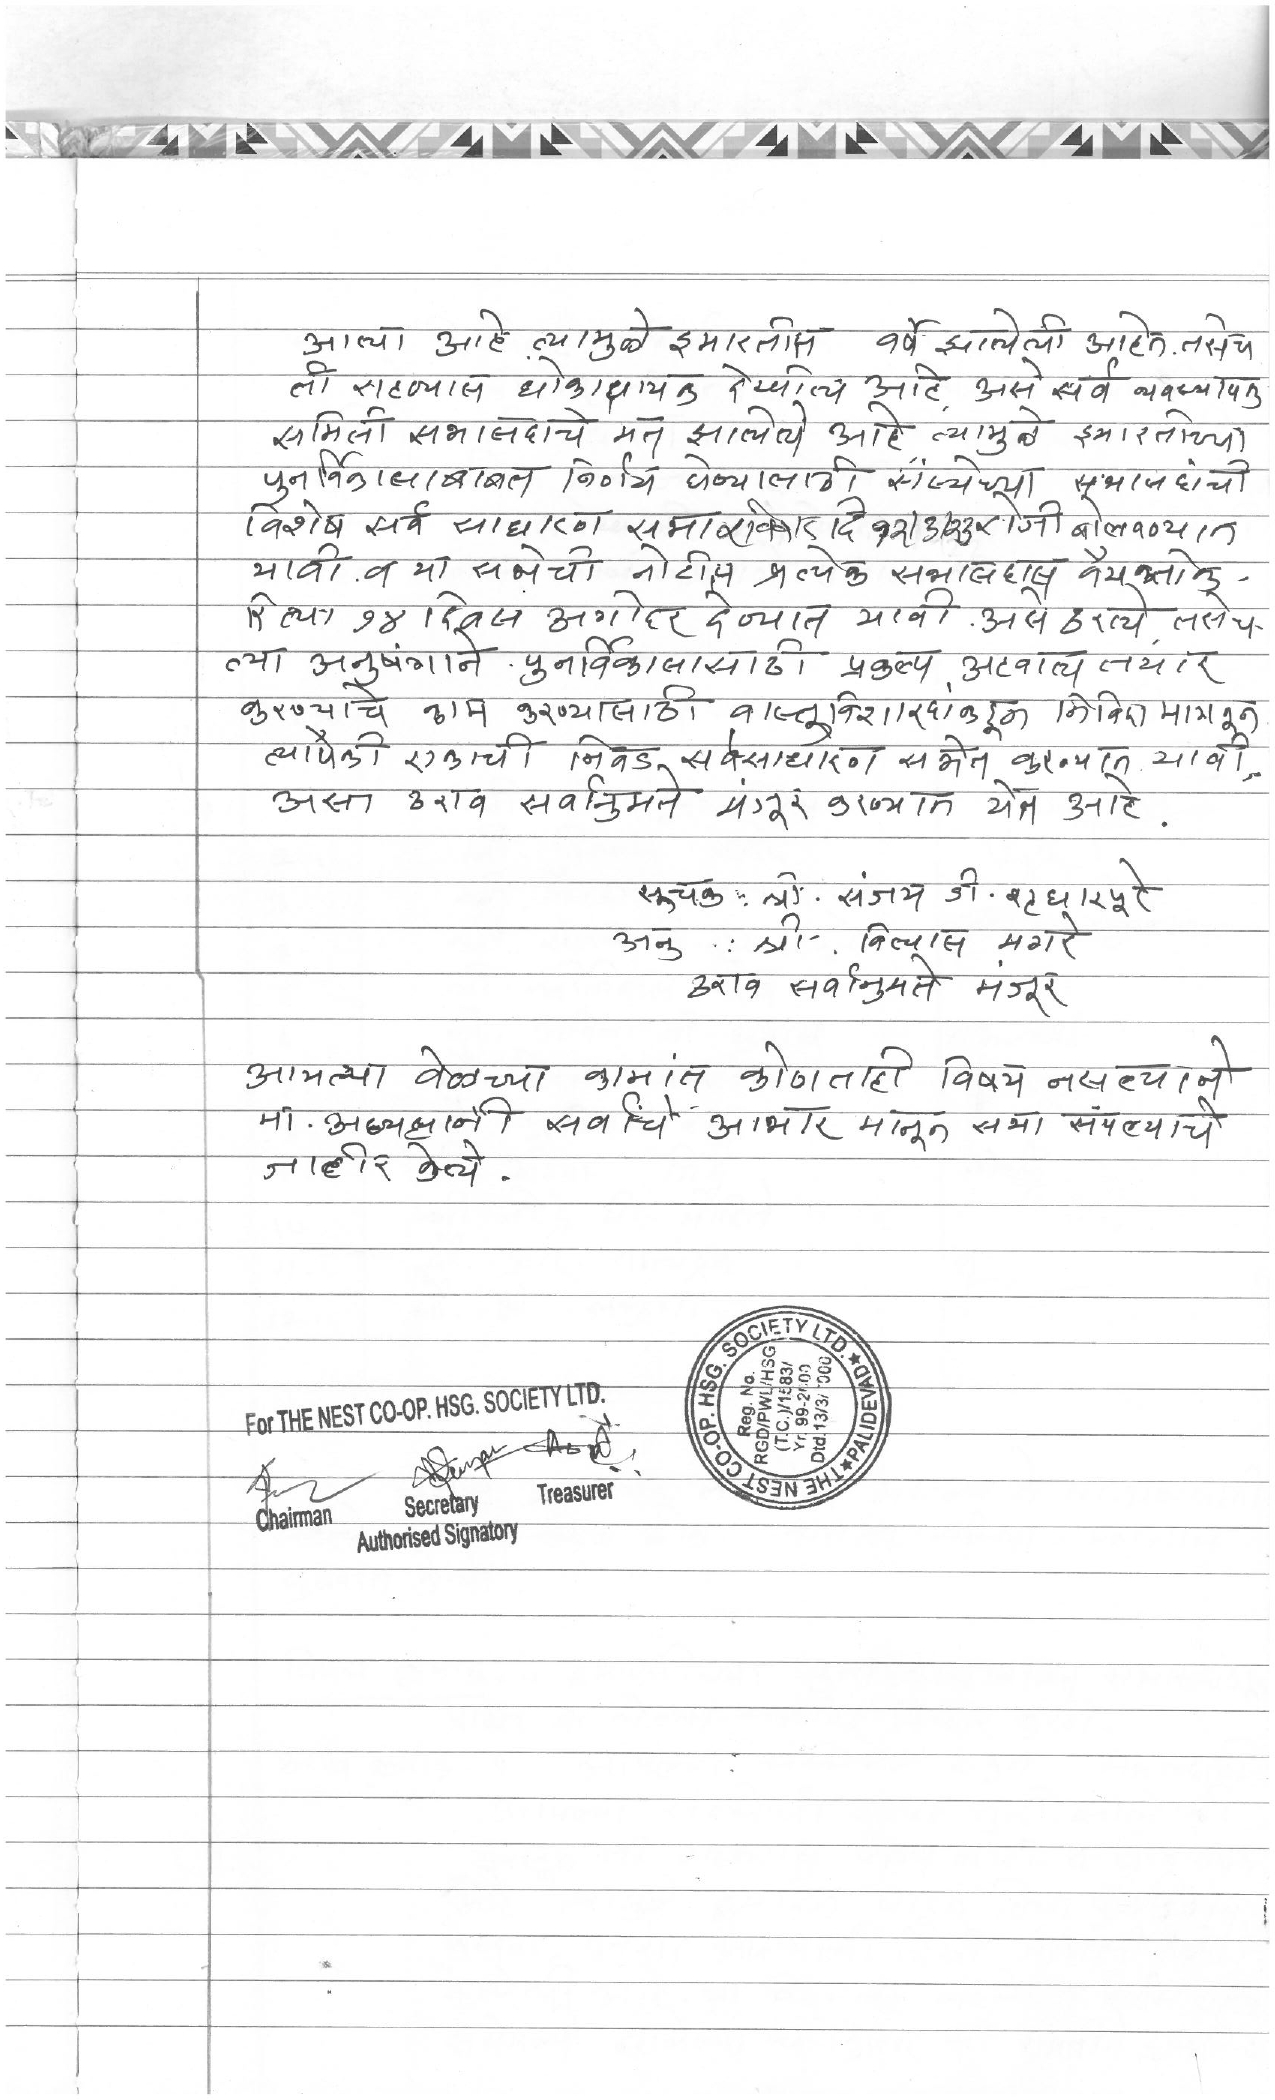 आल्या आहे त्यामुळे इमारतीस वर्षे झालेली आहेत. तसेच
ती राहण्यास धोकादायक देखील आहे, असे सर्व व्यवस्थापक
समिती सभासदांचे मत झालेले आहे त्यामुळे इमारतीच्या
पुनर्विकासाबाबत निर्णय घेण्यासाठी संस्थेच्या सभासदांची
विशेष सर्व साधारण सभा दि रोजी बोलवण्यात
यावी. व या सभेची नोटीस प्रत्येक सभासदास वैयक्तीक-
रित्या १४ दिवस अगोदर देण्यात यावी. असे ठरले, तसेच-
त्या अनुषंगाने. पुनर्विकासासाठी प्रकल्प अहवाल तयार
करण्याचे काम करण्यासाठी वास्तुविशारदांकडून निविदा मागवून
त्यापैकी एकाची निवड, सर्वसाधारण सभेत करण्यात यावी,
असा ठराव सर्वानुमते मंजूर करण्यात येत आहे.
सूचक : श्री. संजय डी.
अनु : श्री. विलास मगरे
ठराव सर्वानुमते मंजूर
आयत्या वेळच्या कामांत कोणताही विषय नसल्याने
मा. अध्यक्षांनी सर्वांचे आभार मानून सभा संपल्याचे
जाहीर केले.
For THE NEST CO-OP. HSG. SOCIETY LTD.
Chairman Secretary Treasurer
Authorised Signatory
THE NEST CO-OP. HSG. SOCIETY LTD. ★ PALIDEVAD ★
Reg. No.
RGD/PWL/HSG
(T.C.)/1583/
Yr. 99-2000
Dtd.13/3/2000